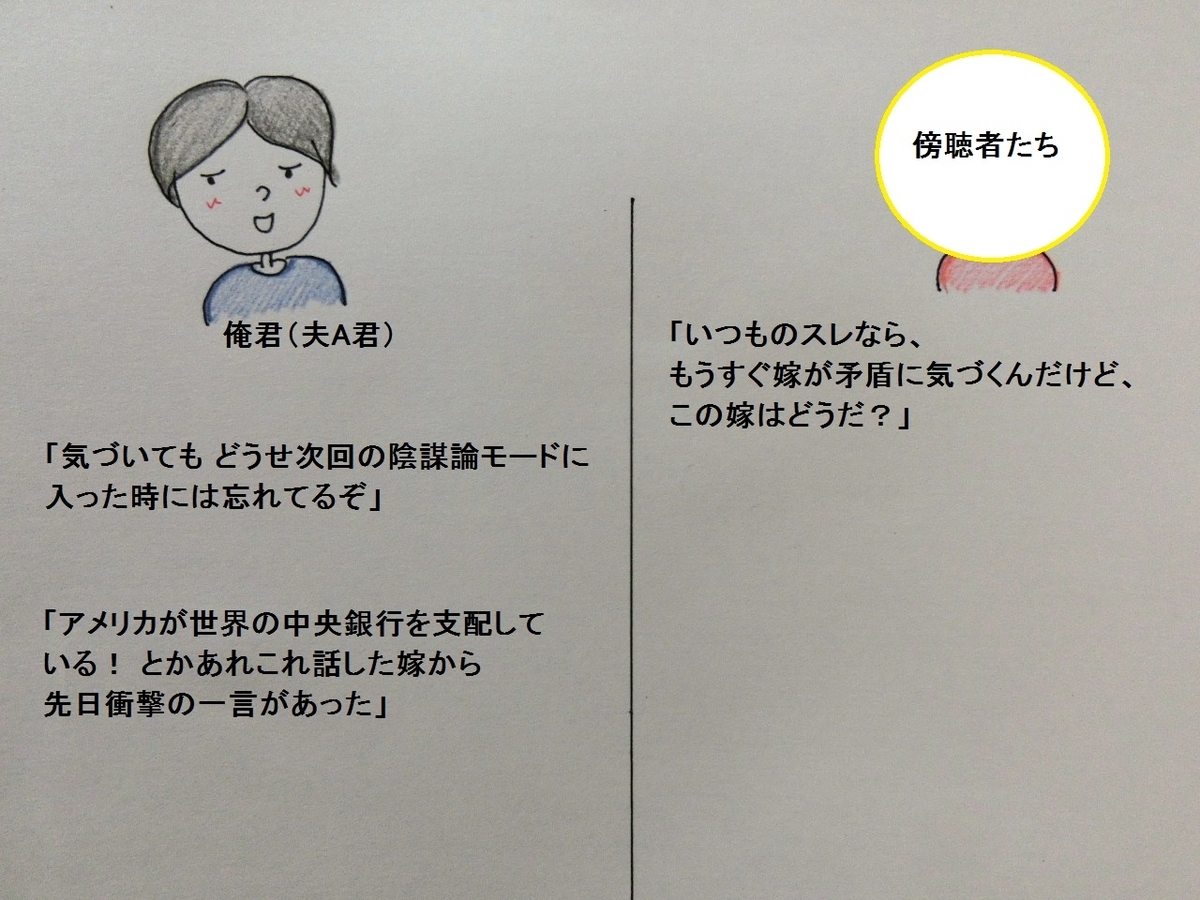 傍聴者たち
俺君(夫A君)
「いつものスレなら、
もうすぐ嫁が矛盾に気づくんだけど、
この嫁はどうだ?」
「気づいても どうせ次回の陰謀論モードに
入った時には忘れてるぞ」
「アメリカが世界の中央銀行を支配して
いる! とかあれこれ話した嫁から
先日衝撃の一言があった」